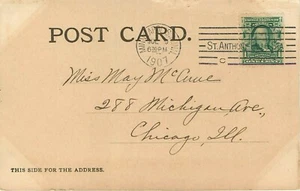 POST CARD.
1907
ST. ANTHO
Miss May McCune
288 Michigan Ave,
Chicago, Ill.
THIS SIDE FOR THE ADDRESS.